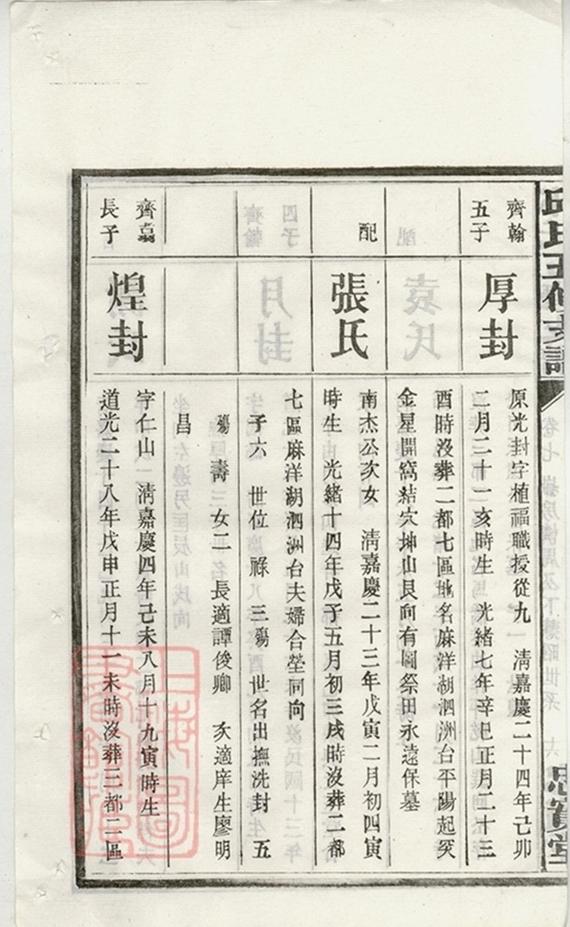 邱氏五修支譜
思實堂
齊翰
五子
厚封
原光封字植福職授從九 清嘉慶二十四年己卯
二月二十一亥時生 光緒七年辛巳正月二十三
酉時沒葬二都七區地名麻洋湖泗洲台平陽起突
金星開窩結穴坤山艮向有圖祭田永遠保墓
配
張氏
南杰公次女 清嘉慶二十三年戊寅二月初四寅
時生 光緒十四年戊子五月初三戌時沒葬二都
七區麻洋湖泗洲台夫婦合塋同向
子六 世位 祿 三殤 世名出撫洗封 五
殤 壽 女二 長適譚俊卿 次適庠生廖明
昌
齊
長子
煌封
字仁山 清嘉慶四年己未八月十九寅時生
道光二十八年戊申正月十一未時沒葬三都二區